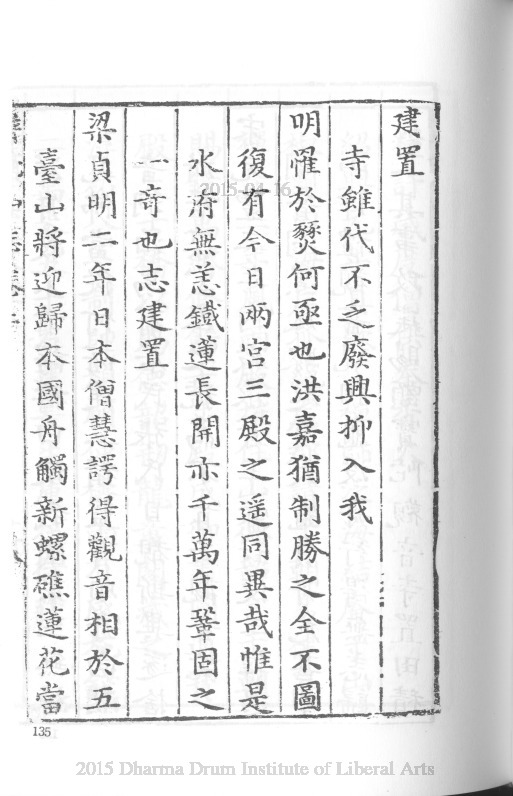 建置
寺雖代不乏廢興抑入我
明罹於燹何亟也洪嘉猶制勝之全不圖
復有今日兩宮三殿之遥同異哉惟是
水府無恙鐡蓮長開亦千萬年鞏固之
一奇也志建置
梁貞明二年日本僧慧諤得觀音相於五
臺山將迎歸本國舟觸新螺礁蓮花當
135
2015-04-16
2015 Dharma Drum Institute of Liberal Arts